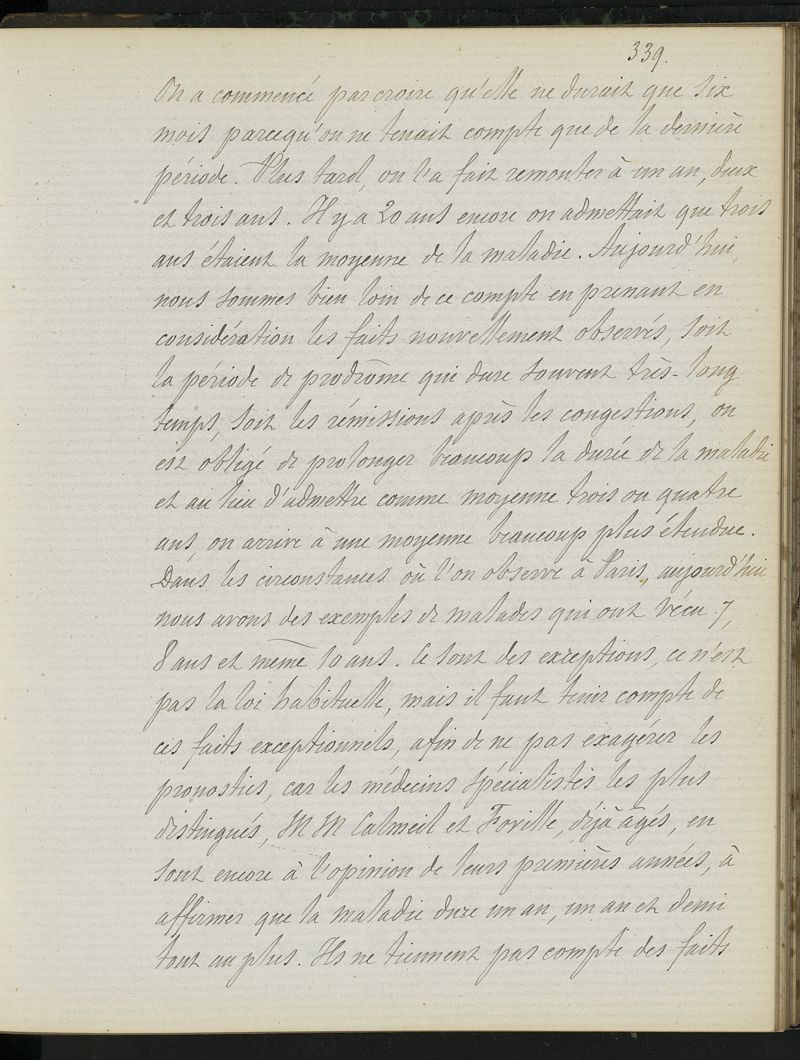 339.
On a commencé par croire qu'elle ne durait que six
mois parcequ'on ne tenait compte que de la dernière
période. Plus tard, on l'a fait remonter à un an, deux
et trois ans. Il y a 20 ans encore on admettait que trois
ans étaient la moyenne de la maladie. Aujourd'hui,
nous sommes bien loin de ce compte en prenant en
considération les faits nouvellement observés, soit
la période de prodrôme qui dure souvent très-long
temps, soit les rémissions après les congestions, on
est obligé de prolonger beaucoup la durée de la maladie
et au lieu d'admettre comme moyenne trois ou quatre
ans, on arrive à une moyenne beaucoup plus étendue.
Dans les circonstances où l'on observe à Paris, aujourd'hui
nous avons des exemples de malades qui ont vécu 7,
8 ans et même 10 ans. Ce sont des exceptions, ce n'est
pas la loi habituelle, mais il faut tenir compte de
ces faits exceptionnels, afin de ne pas exagérer les
pronostics, car les médecins spécialistes les plus
distingués, MM Calmeil et Foville, déjà âgés, en
sont encore à l'opinion de leurs premières années, à
affirmer que la maladie dure un an, un an et demi
tout au plus. Ils ne tiennent pas compte des faits